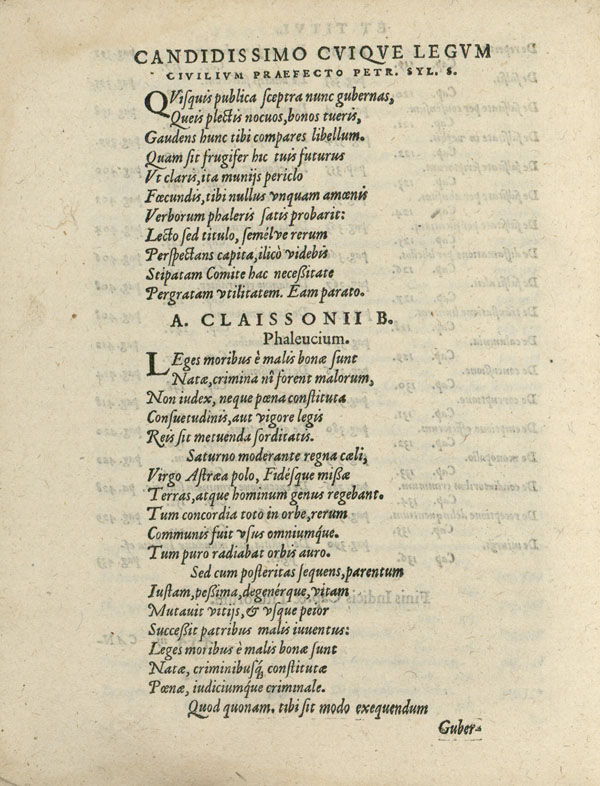 CANDIDISSIMO CVIQVE LEGVM
CIVILIVM PRAEFECTO PETR. SYL. S.
QVisquis publica sceptra nunc gubernas,
Queis plectis nocuos, bonos tueris,
Gaudens hunc tibi compares libellum.
Quam sit frugifer hic tuis futurus
Vt claris, ita munijs periclo
Fœcundis, tibi nullus vnquam amœnis
Verborum phaleris satis probarit:
Lecto sed titulo, semélve rerum
Perspectans capita, ilicò videbis
Stipatam Comite hac neceßitate
Pergratam vtilitatem. Eam parato.
A. CLAISSONII B.
Phaleucium.
LEges moribus è malis bonæ sunt
Natæ, crimina nî forent malorum,
Non iudex, neque pœna constituta
Consuetudinis, aut vigore legis
Reis sit metuenda sorditatis.
Saturno moderante regna cæli,
Virgo Astræa polo, Fidésque mißæ
Terras, atque hominum genus regebant.
Tum concordia toto in orbe, rerum
Communis fuit vsus omniumq́ue.
Tum puro radiabat orbis auro.
Sed cum posteritas sequens, parentum
Iustam, peßima, degenerque, vitam
Mutauit vitijs, & vsque peior
Succeßit patribus malis iuuentus:
Leges moribus è malis bonæ sunt
Natæ, criminibusq́; constitutæ
Pœnæ, iudiciumque criminale.
Quod quonam. tibi sit modo exequendum
Guber-